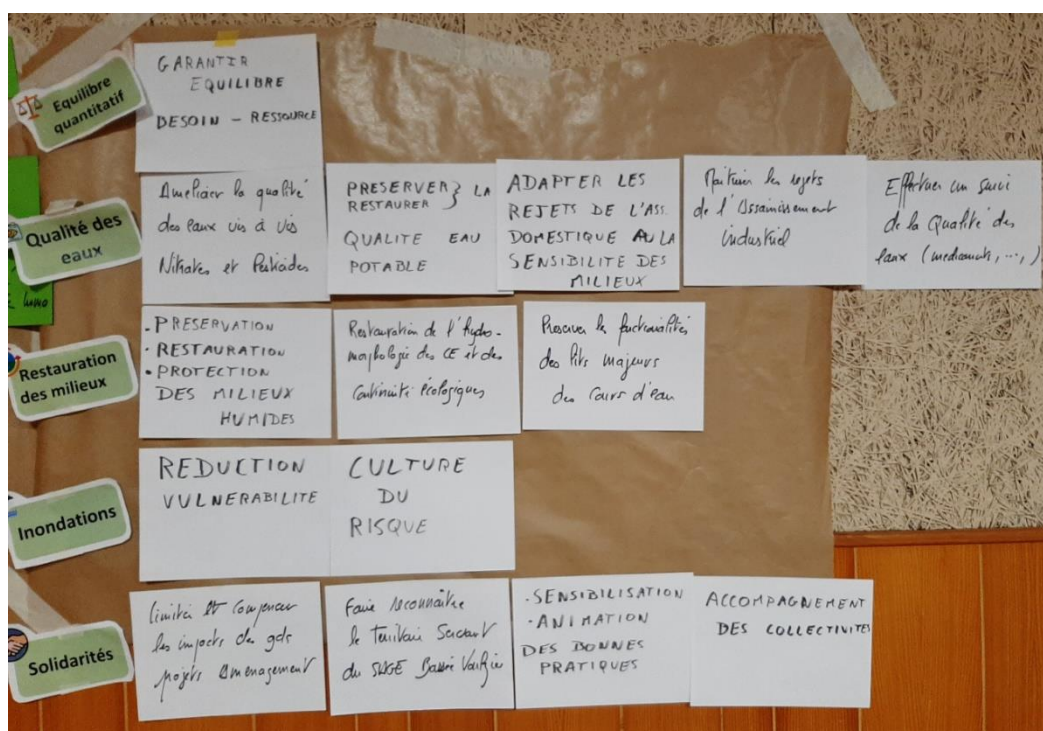 Equilibre
quantitatif
GARANTIR
EQUILIBRE
DESOIN - RESSOURCE
Qualité des
eaux
Améliorer la qualité
des eaux vis à vis
Nitrates et Pesticides
PRESERVER } LA
RESTAURER
QUALITE EAU
POTABLE
ADAPTER LES
REJETS DE L'ASS.
DOMESTIQUE A LA
SENSIBILITE DES
MILIEUX
Maîtriser les rejets
de l'Assainissement
industriel
Effectuer un suivi
de la Qualité des
eaux (médicaments, ...,)
Restauration
des milieux
. PRESERVATION
. RESTAURATION
. PROTECTION
DES MILIEUX
HUMIDES
Restauration de l'hydro-
morphologie des CE et des
continuité écologiques
Préserver les fonctionnalités
des lits majeurs
des cours d'eau
Inondations
REDUCTION
VULNERABILITE
CULTURE
DU
RISQUE
Solidarités
limiter et compenser
les impacts des gds
projets Aménagement
Faire reconnaître
le territoire
du SAGE Bassée Voulzie
. SENSIBILISATION
. ANIMATION
DES BONNES
PRATIQUES
ACCOMPAGNEMENT
DES COLLECTIVITES